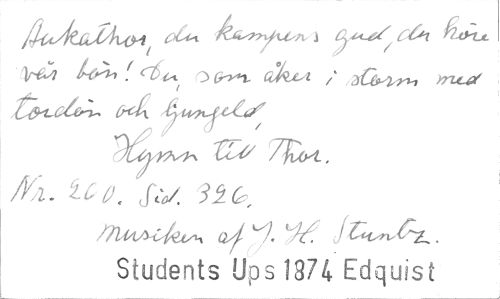 Aukathor, du kampens gud, du höre
vår bön! Du, som åker i storm med
tordön och ljungeld,
Hymn till Thor.
Nr. 260. Sid. 326.
Musiken af J. H. Stuntz.
Students Ups 1874 Edquist